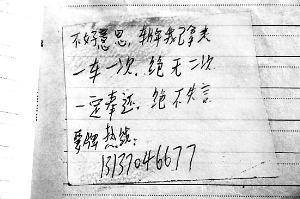 不好意思,车牌我已拿走
一车一次,绝无二次
一定奉还,绝不失言
要牌热线:
13137046677